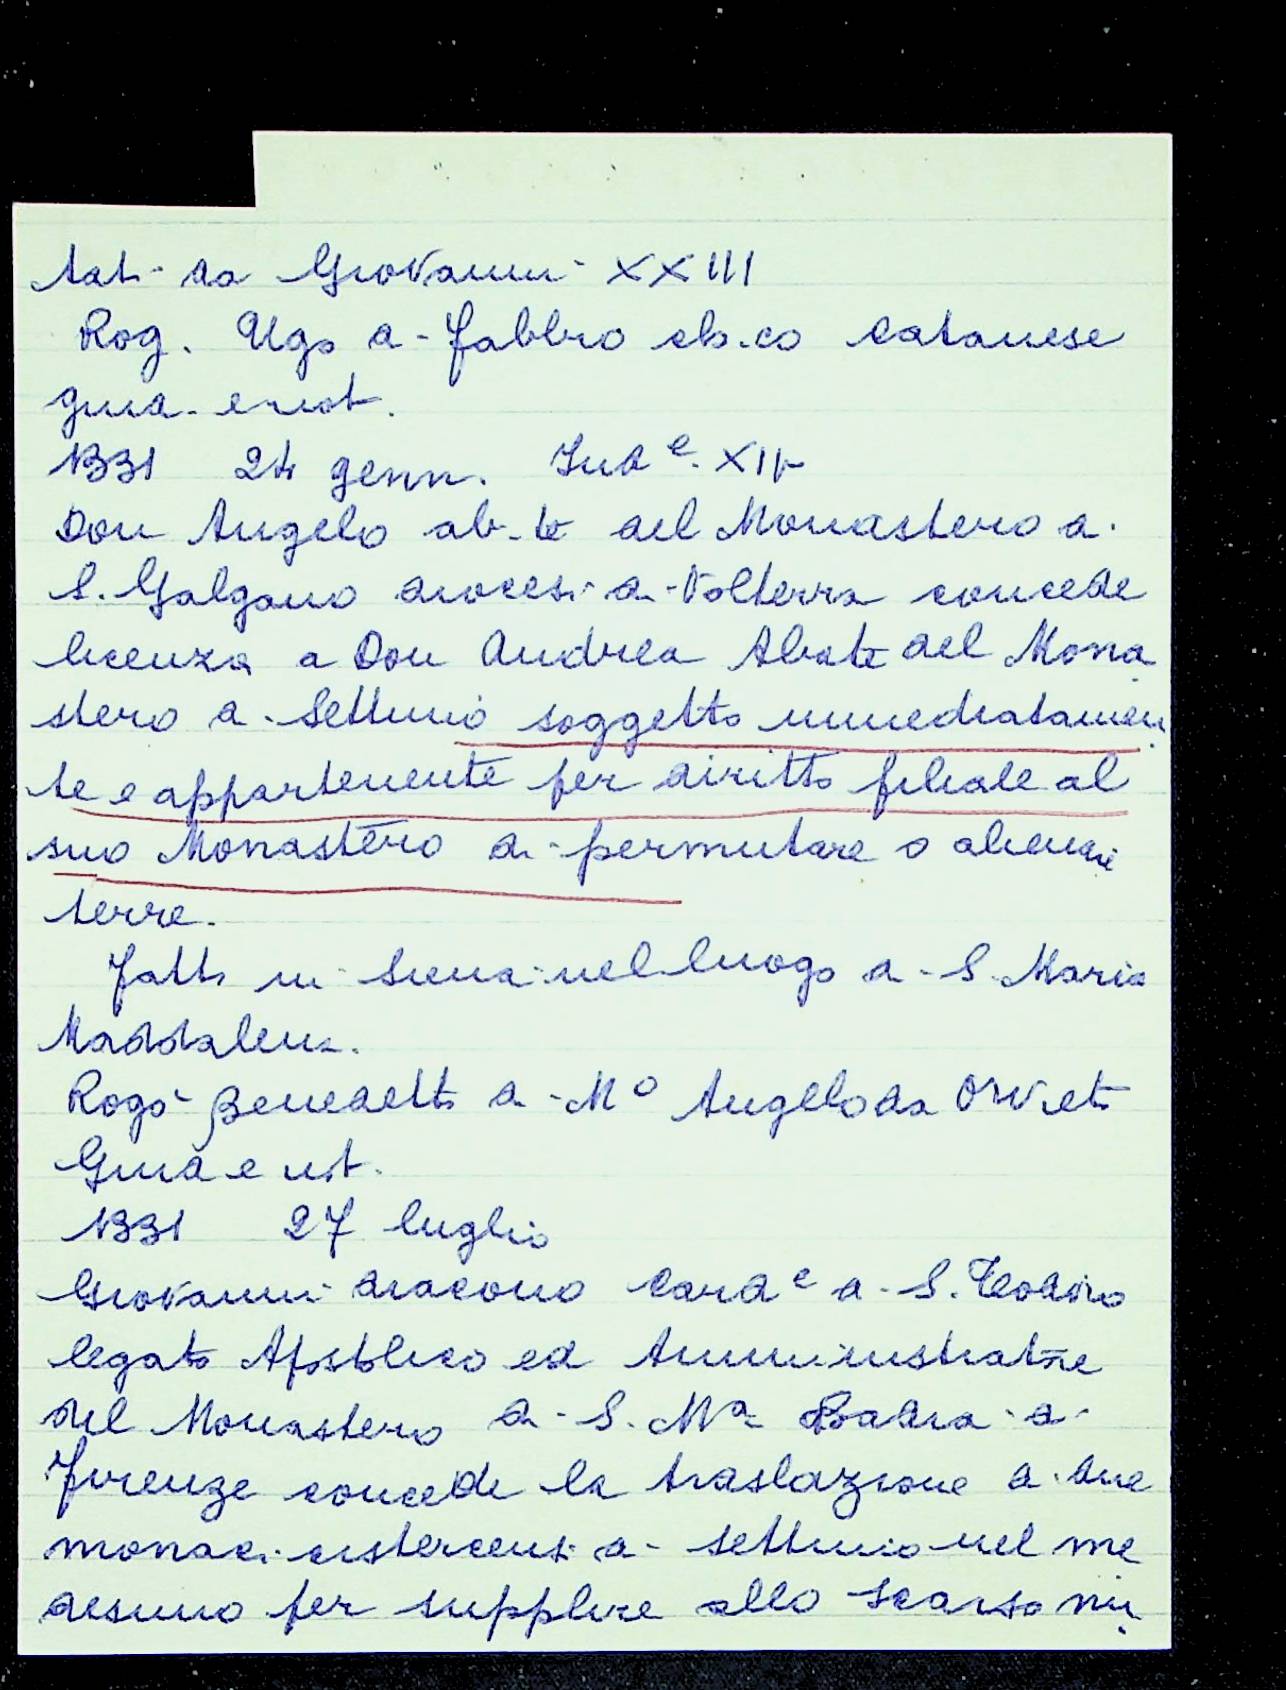 dat. da Giovanni XXIII
Rog. Ugo di Fabbro ch.co catanese
giud. e not.
1331 24 genn. Ind e. XIV
Don Angelo ab.te del Monastero di
S. Galgano diocesi di Volterra concede
licenza a Don Andrea Abate del Mona
stero di Settimo soggetto immediatamen
te e appartenente per diritto filiale al
suo Monastero di permutare o alienare
terre.
Fatto in Siena nel luogo di S. Maria
Maddalena.
Rogò Benedetto di M.o Angelo da Orvieto
Giud e not.
1331 27 luglio
Giovanni diacono Card e di S. Teodoro
legato Apostolico ed Amministratore
del Monastero di S. Ma Badia di
Firenze concede la traslazione di due
monaci cistercensi di Settimo nel me
desimo per supplire allo scarso nu.